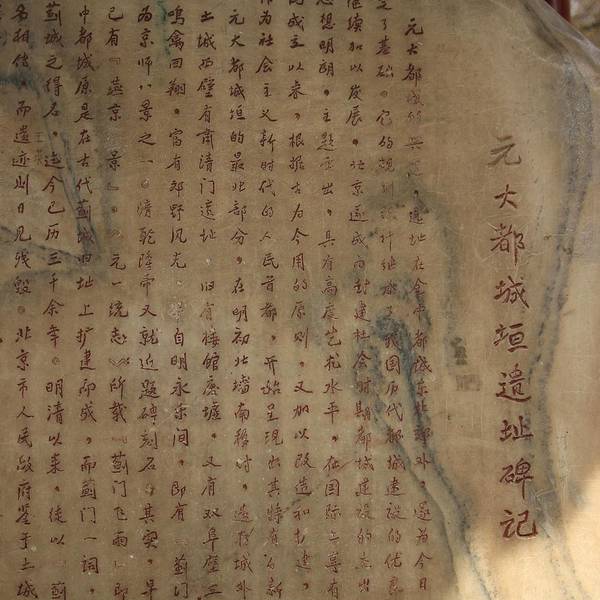 元大都城垣遗址碑记
元大都城的兴建，选址在金中都城东北郊外，遂为今日
定了基础。它的规划设计继承了我国历代都城建设的优良
继续加以发展。北京遂成为封建社会时期都城建设的杰出
思想明朗，主题突出，具有高度艺术水平，在国际上享有
的成立以来，根据古为今用的原则，又加以改造和扩建，
作为社会主义新时代的人民首都，开始呈现出其特有的新
元大都城垣的最北部分，在明初北墙南移时，遗存城外
土城西壁有肃清门遗址，旧有楼馆废墟，又有双阜壁立
鸣禽回翔，富有郊野风光，自明永乐间，即有《蓟门
为京师八景之一。清乾隆帝又就近题碑刻石。其实，早
已有《燕京八景》。《元一统志》所载《蓟门飞雨》即
中都城原是在古代蓟城旧址上扩建而成，而蓟门一词，
蓟城之得名。迄今已历三千余年。明清以来，徒以《蓟
名相传，而遗迹则日见残毁。北京市人民政府鉴于土城